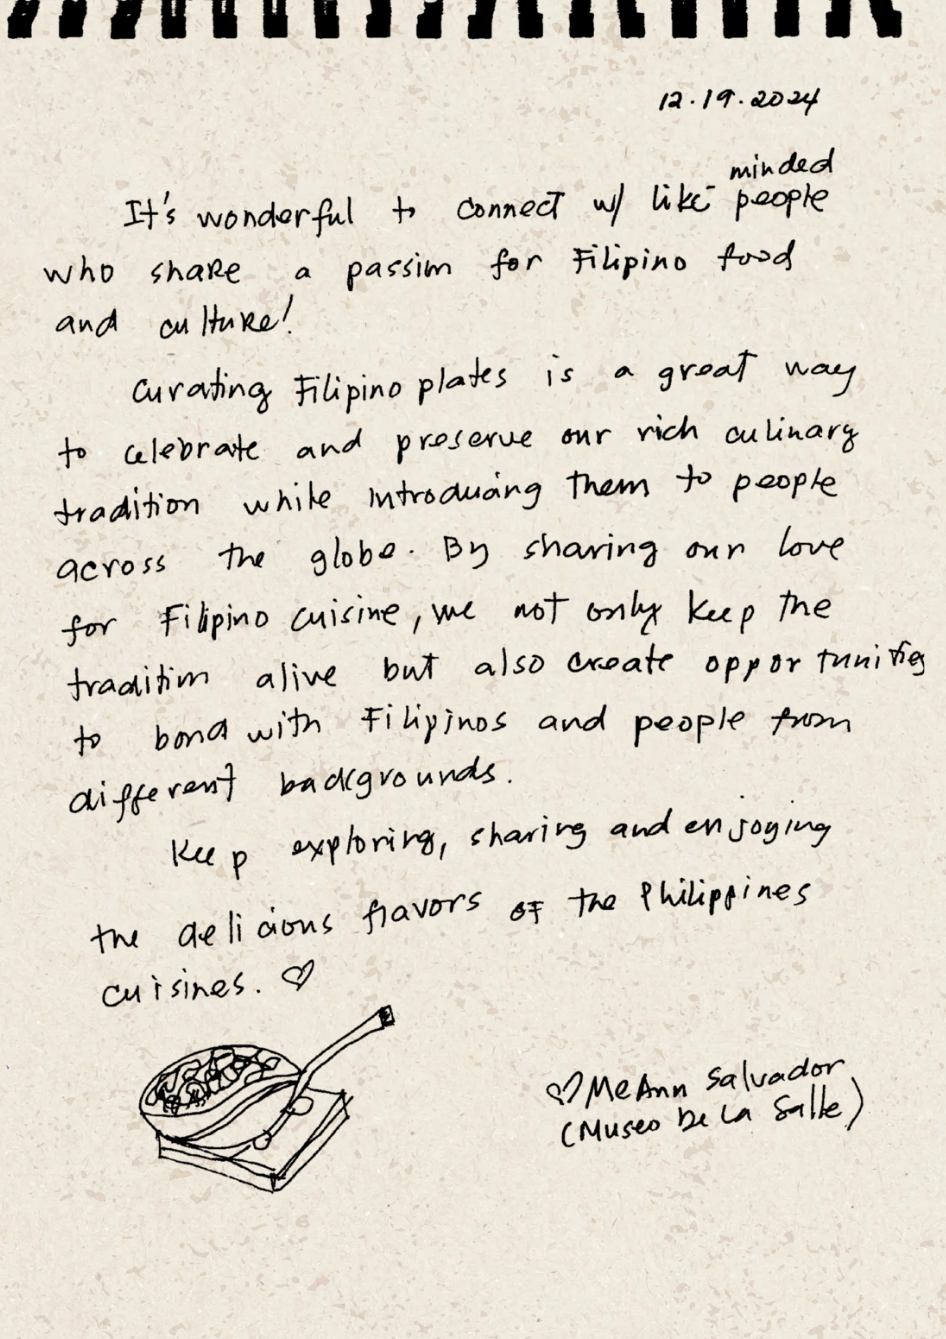 12.19.2024
It's wonderful to connect w/ like-minded people
who share a passion for Filipino food
and culture!
Curating Filipino plates is a great way
to celebrate and preserve our rich culinary
tradition while introducing them to people
across the globe. By sharing our love
for Filipino cuisine, we not only keep the
tradition alive but also create opportunities
to bond with Filipinos and people from
different backgrounds.
Keep exploring, sharing and enjoying
the delicious flavors of the Philippines
cuisines. ♡
♡ MeAnn Salvador
(Museo De La Salle)